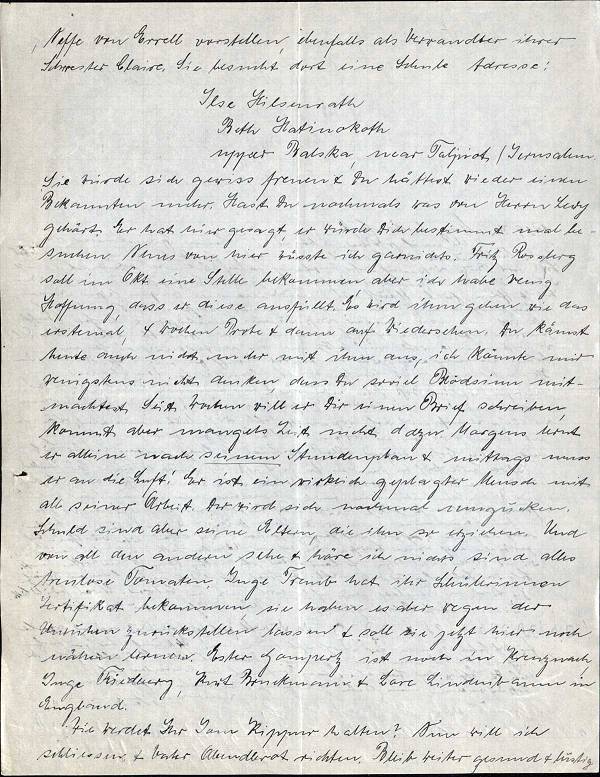 , Neffe von Errell vorstellen, ebenfalls als Verwandter ihrer
Schwester Claire. Sie besucht dort eine Schule Adresse:
Ilse Hilsenrath
Beth Hatinokoth
upper Balska, near Talpiot / Jerusalem.
Sie würde sich gewiss freuen & Du hättest wieder einen
Bekannten mehr. Hast Du nochmals was von Herrn Levy
gehört. Er hat hier gesagt, er würde Dich bestimmt mal be-
suchen Neues von hier wüsste ich garnichts. Fritz Rossberg
soll im Okt eine Stelle bekommen, aber ich habe wenig
Hoffnung, dass er diese ausfüllt. Es wird ihm gehen wie das
erstemal, 4 Wochen Probe & dann auf Wiedersehen. Du kämst
heute auch nicht mehr mit ihm aus, ich könnte mir
wenigstens nicht denken, dass Du soviel Blödsinn mit-
machtest Seit Wochen will er Dir einen Brief schreiben,
kommt aber mangels Zeit nicht dazu Morgens lernt
er alleine nach seinem Stundenplan & mittags muss
er an die Luft! Er ist ein wirklich geplagter Mensch mit
all seiner Arbeit. Der wird sich nochmal umgucken.
Schuld sind aber seine Eltern, die ihn so erziehen. Und
von all den anderen sehe & höre ich nichts, sind alles
treulose Tomaten. Inge Tremb hat ihr Schülerinnen
Zertifikat bekommen sie haben es aber wegen der
Unruhen zurückstellen lassen & soll sie jetzt hier noch
nähen lernen. Ester Gompertz ist noch in Kreuznach
Inge Friedberg, Kurt Bruckmann & Lore Lindenbaum in
England.
Wie werdet Ihr Jom Kippur halten? Nun will ich
schliessen & Vater Abendbrot richten. Bleib weiter gesund & lustig